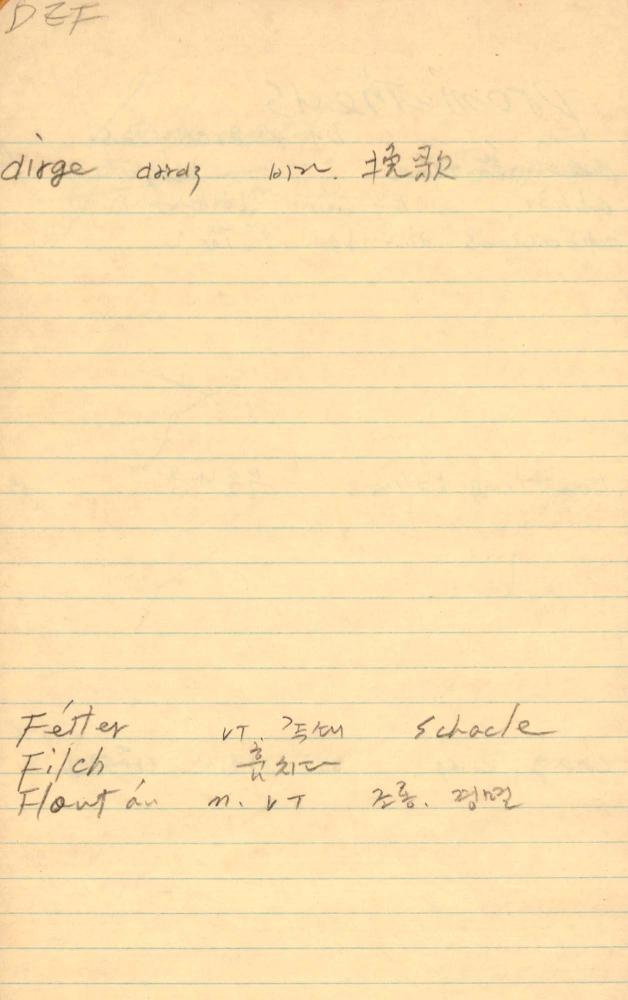 DEF
dirge dəːrdʒ 비가. 挽歌
Fétter vT. 족쇄 Schacle
Filch 훔치다
Flout áu n. vT 조롱. 경멸